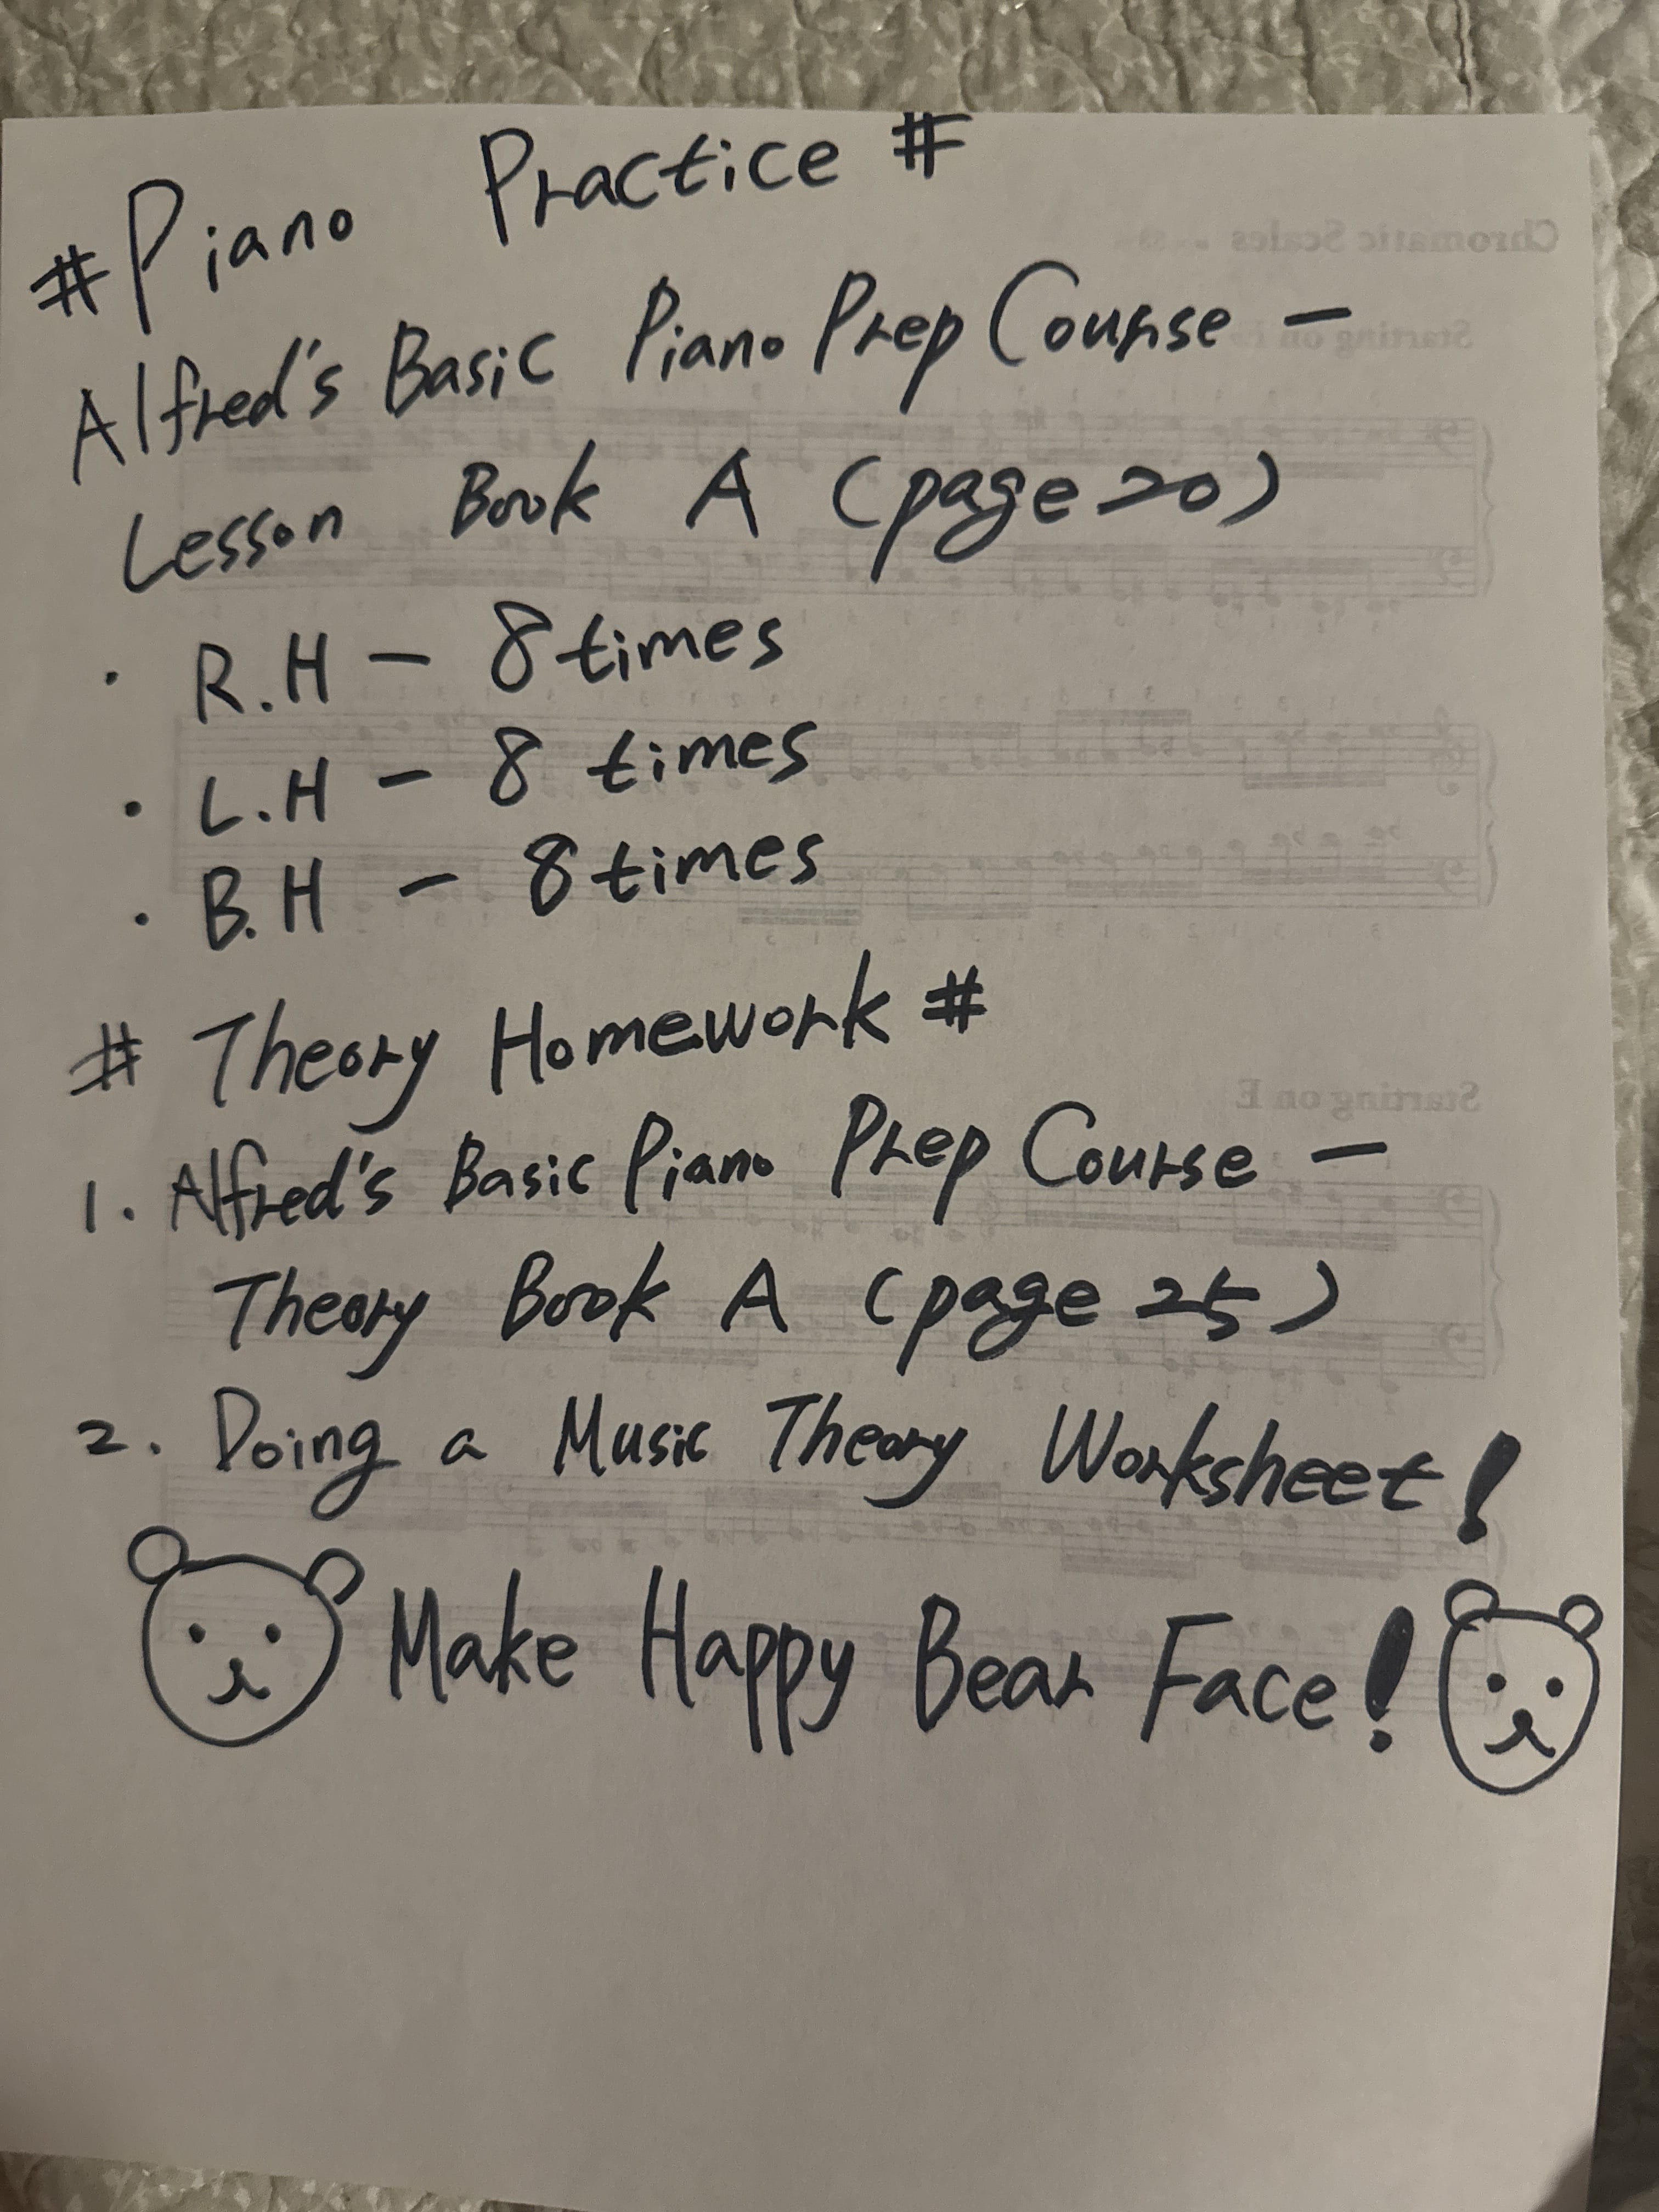 # Piano Practice #
Alfred's Basic Piano Prep Course -
Lesson Book A (page 20)
· R.H - 8 times
· L.H - 8 times
· B.H - 8 times
# Theory Homework #
1. Alfred's Basic Piano Prep Course -
Theory Book A (page 25)
2. Doing a Music Theory Worksheet!
Make Happy Bear Face!
Chromatic Scales
Starting on
Starting on E